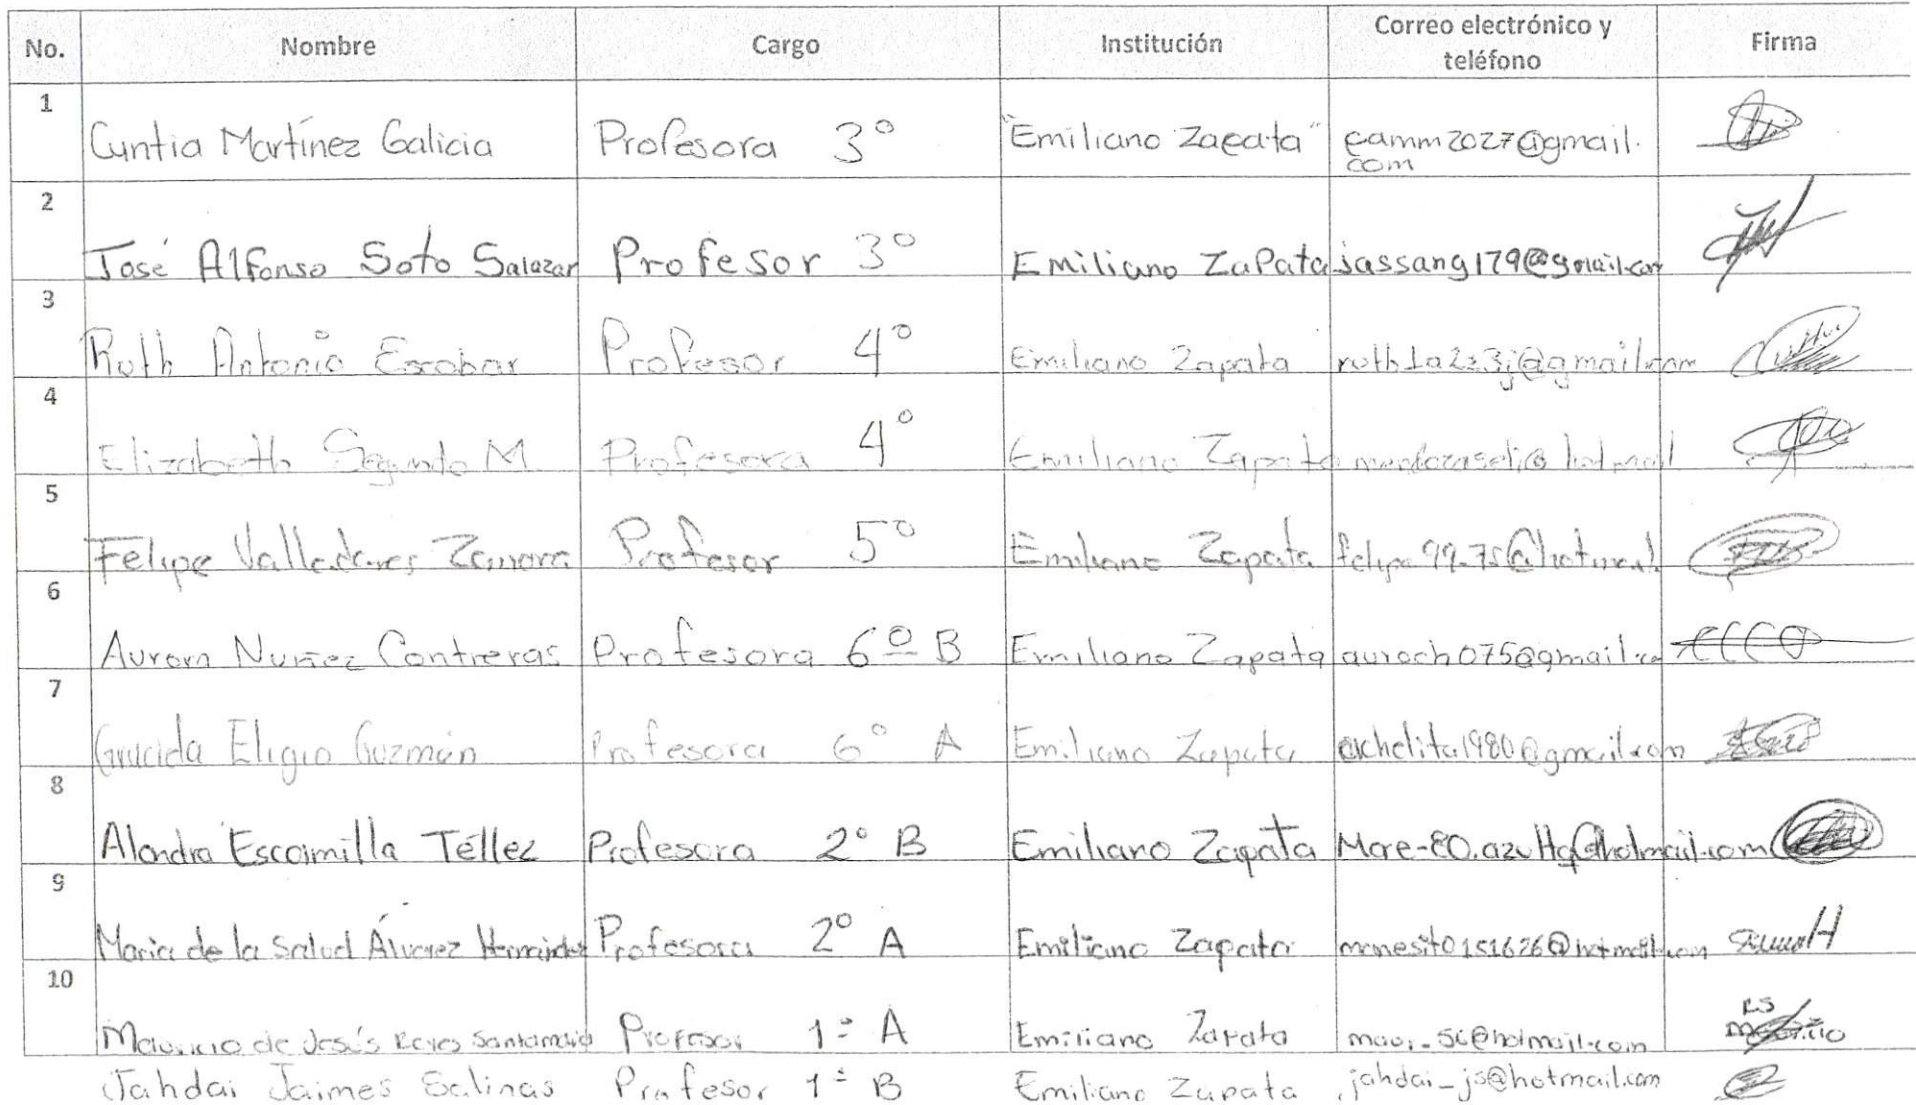 No. Nombre Cargo Institución Correo electrónico y teléfono Firma
1 Cyntia Martínez Galicia Profesora 3° "Emiliano Zapata" eamm2027@gmail.com
2 José Alfonso Soto Salazar Profesor 3° Emiliano ZaPata jassang179@gmail.com
3 Ruth Antonio Escobar Profesor 4° Emiliano Zapata
4 Elizabeth Segundo M. Profesora 4° Emiliano Zapata
5 Felipe Valladares Zamora Profesor 5° Emiliano Zapata
6 Aurora Nuñez Contreras Profesora 6º B Emiliano Zapata
7 Graciela Eligio Guzmán Profesora 6° A Emiliano Zapata
8 Alondra Escamilla Téllez Profesora 2° B Emiliano Zapata
9 Maria de la Salud Álvarez Hernández Profesora 2° A Emiliano Zapata
10 Mauricio de Jesús Reyes Santamaria Profesor 1º A Emiliano Zapata
Jahdai Jaimes Salinas Profesor 1º B Emiliano Zapata jahdai_js@hotmail.com